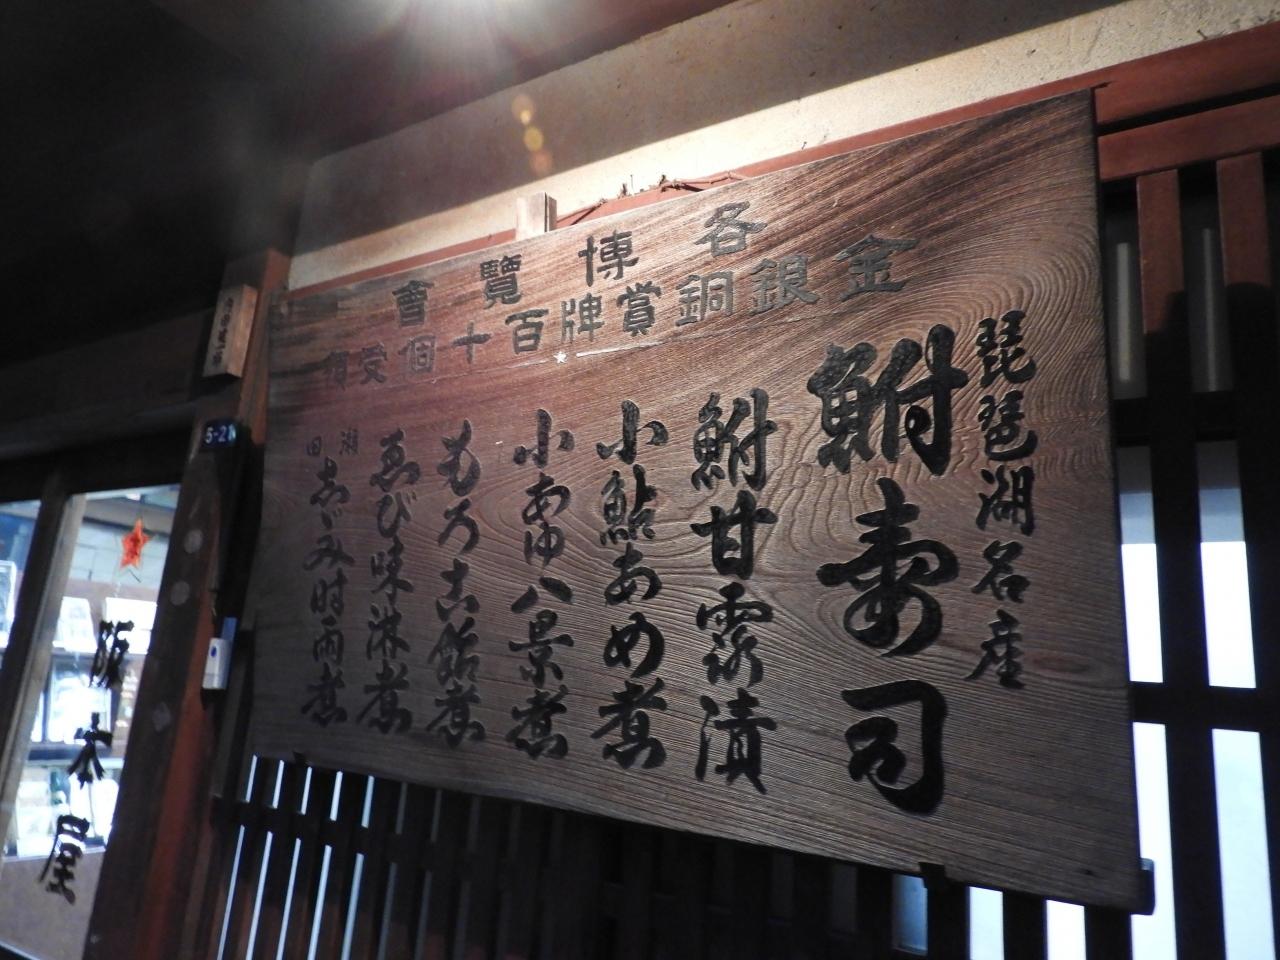 各博覽會
金銀銅賞牌百十個受領
琵琶湖名産
鮒寿司
鮒甘露漬
小鮎あめ煮
小あゆ八景煮
もろこ飴煮
ゑび味淋煮
瀬田
志ゞみ時雨煮
5-21
阪本屋